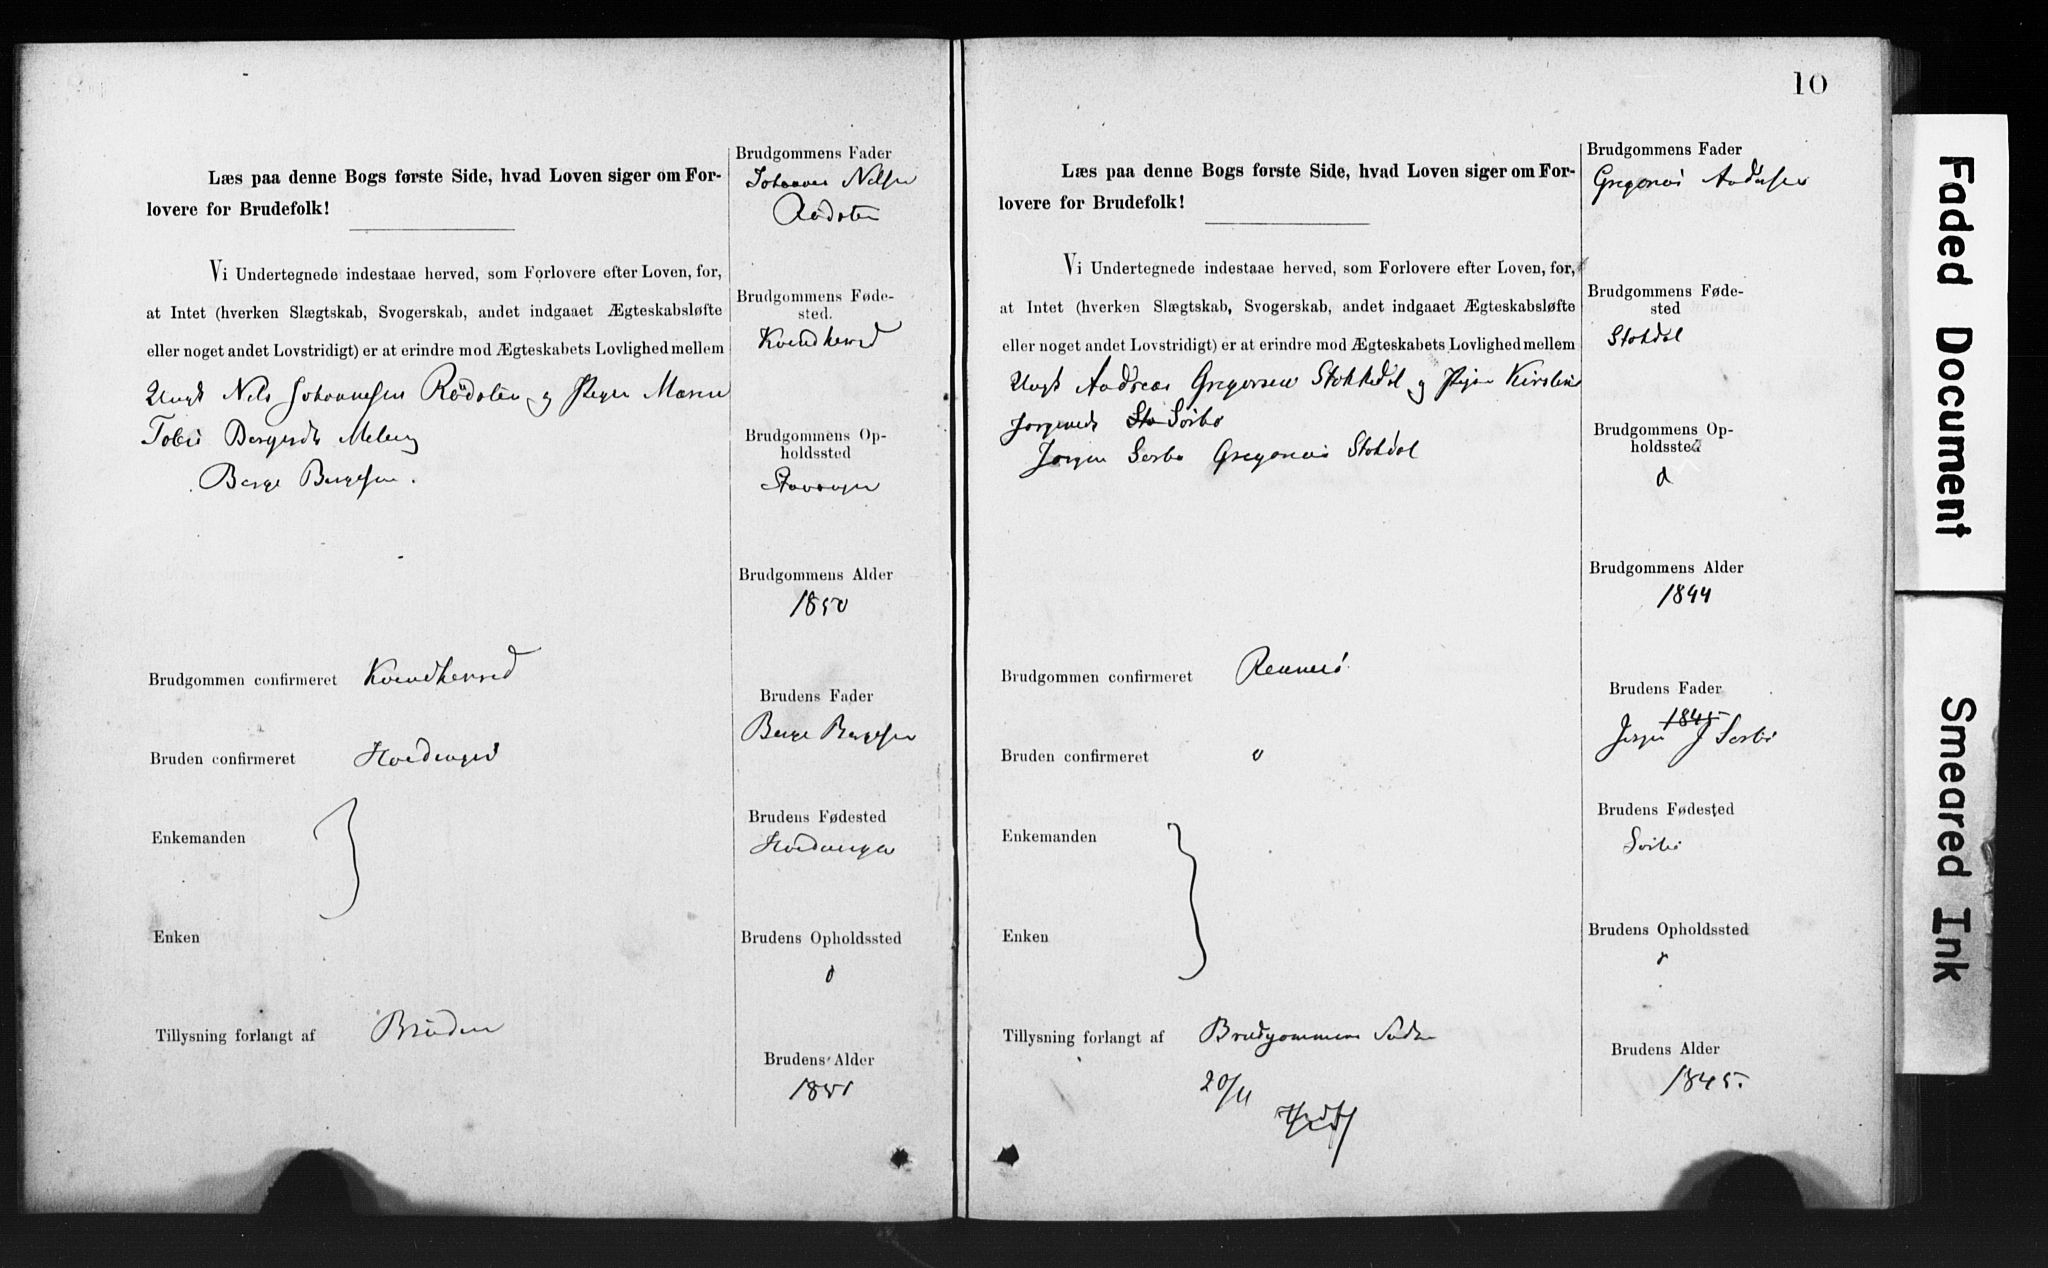 Læs paa denne Bogs første Side, hvad Loven siger om For-
lovere for Brudefolk!
Vi Undertegnede indestaae herved, som Forlovere efter Loven, for,
at Intet (hverken Slægtskab, Svogerskab, andet indgaaet Ægteskabsløfte
eller noget andet Lovstridigt) er at erindre mod Ægteskabets Lovlighed mellem
Ungk Nils Johannesen Rödsten og Pigen Maren
Berge Bergesen.
Brudgommen confirmeret Kvindherred
Bruden confirmeret
Enkemanden
Enken
Tillysning forlangt af Bruden
Brudgommens Fader
Johannes Nilsen
Rödsten
Brudgommens Føde-
sted.
Kvindherred
Brudgommens Op-
holdssted
Stavanger
Brudgommens Alder
1850
Brudens Fader
Berge Bergesen
Brudens Fødested
Brudens Opholdssted
d
Brudens Alder
1851
10
Læs paa denne Bogs første Side, hvad Loven siger om For-
lovere for Brudefolk!
Vi Undertegnede indestaae herved, som Forlovere efter Loven, for,
at Intet (hverken Slægtskab, Svogerskab, andet indgaaet Ægteskabsløfte
eller noget andet Lovstridigt) er at erindre mod Ægteskabets Lovlighed mellem
Ungk Andreas Gregersen Stokkedal og Pigen Kirstine
Sto Sörbö
Jorgen Sorbö Gregorius Stokdal
Brudgommen confirmeret Rennesö
Bruden confirmeret
Enkemanden
Enken
Tillysning forlangt af Brudgommens Fader
20/11
Brudgommens Fader
Gregorius Andersen
Brudgommens Føde-
sted
Stokdal
Brudgommens Op-
holdssted
d
Brudgommens Alder
1844
Brudens Fader
1845
Jorgen J Sorbö
Brudens Fødested
Sörbö
Brudens Opholdssted
Brudens Alder
1845.
Faded Document
Smeared Ink